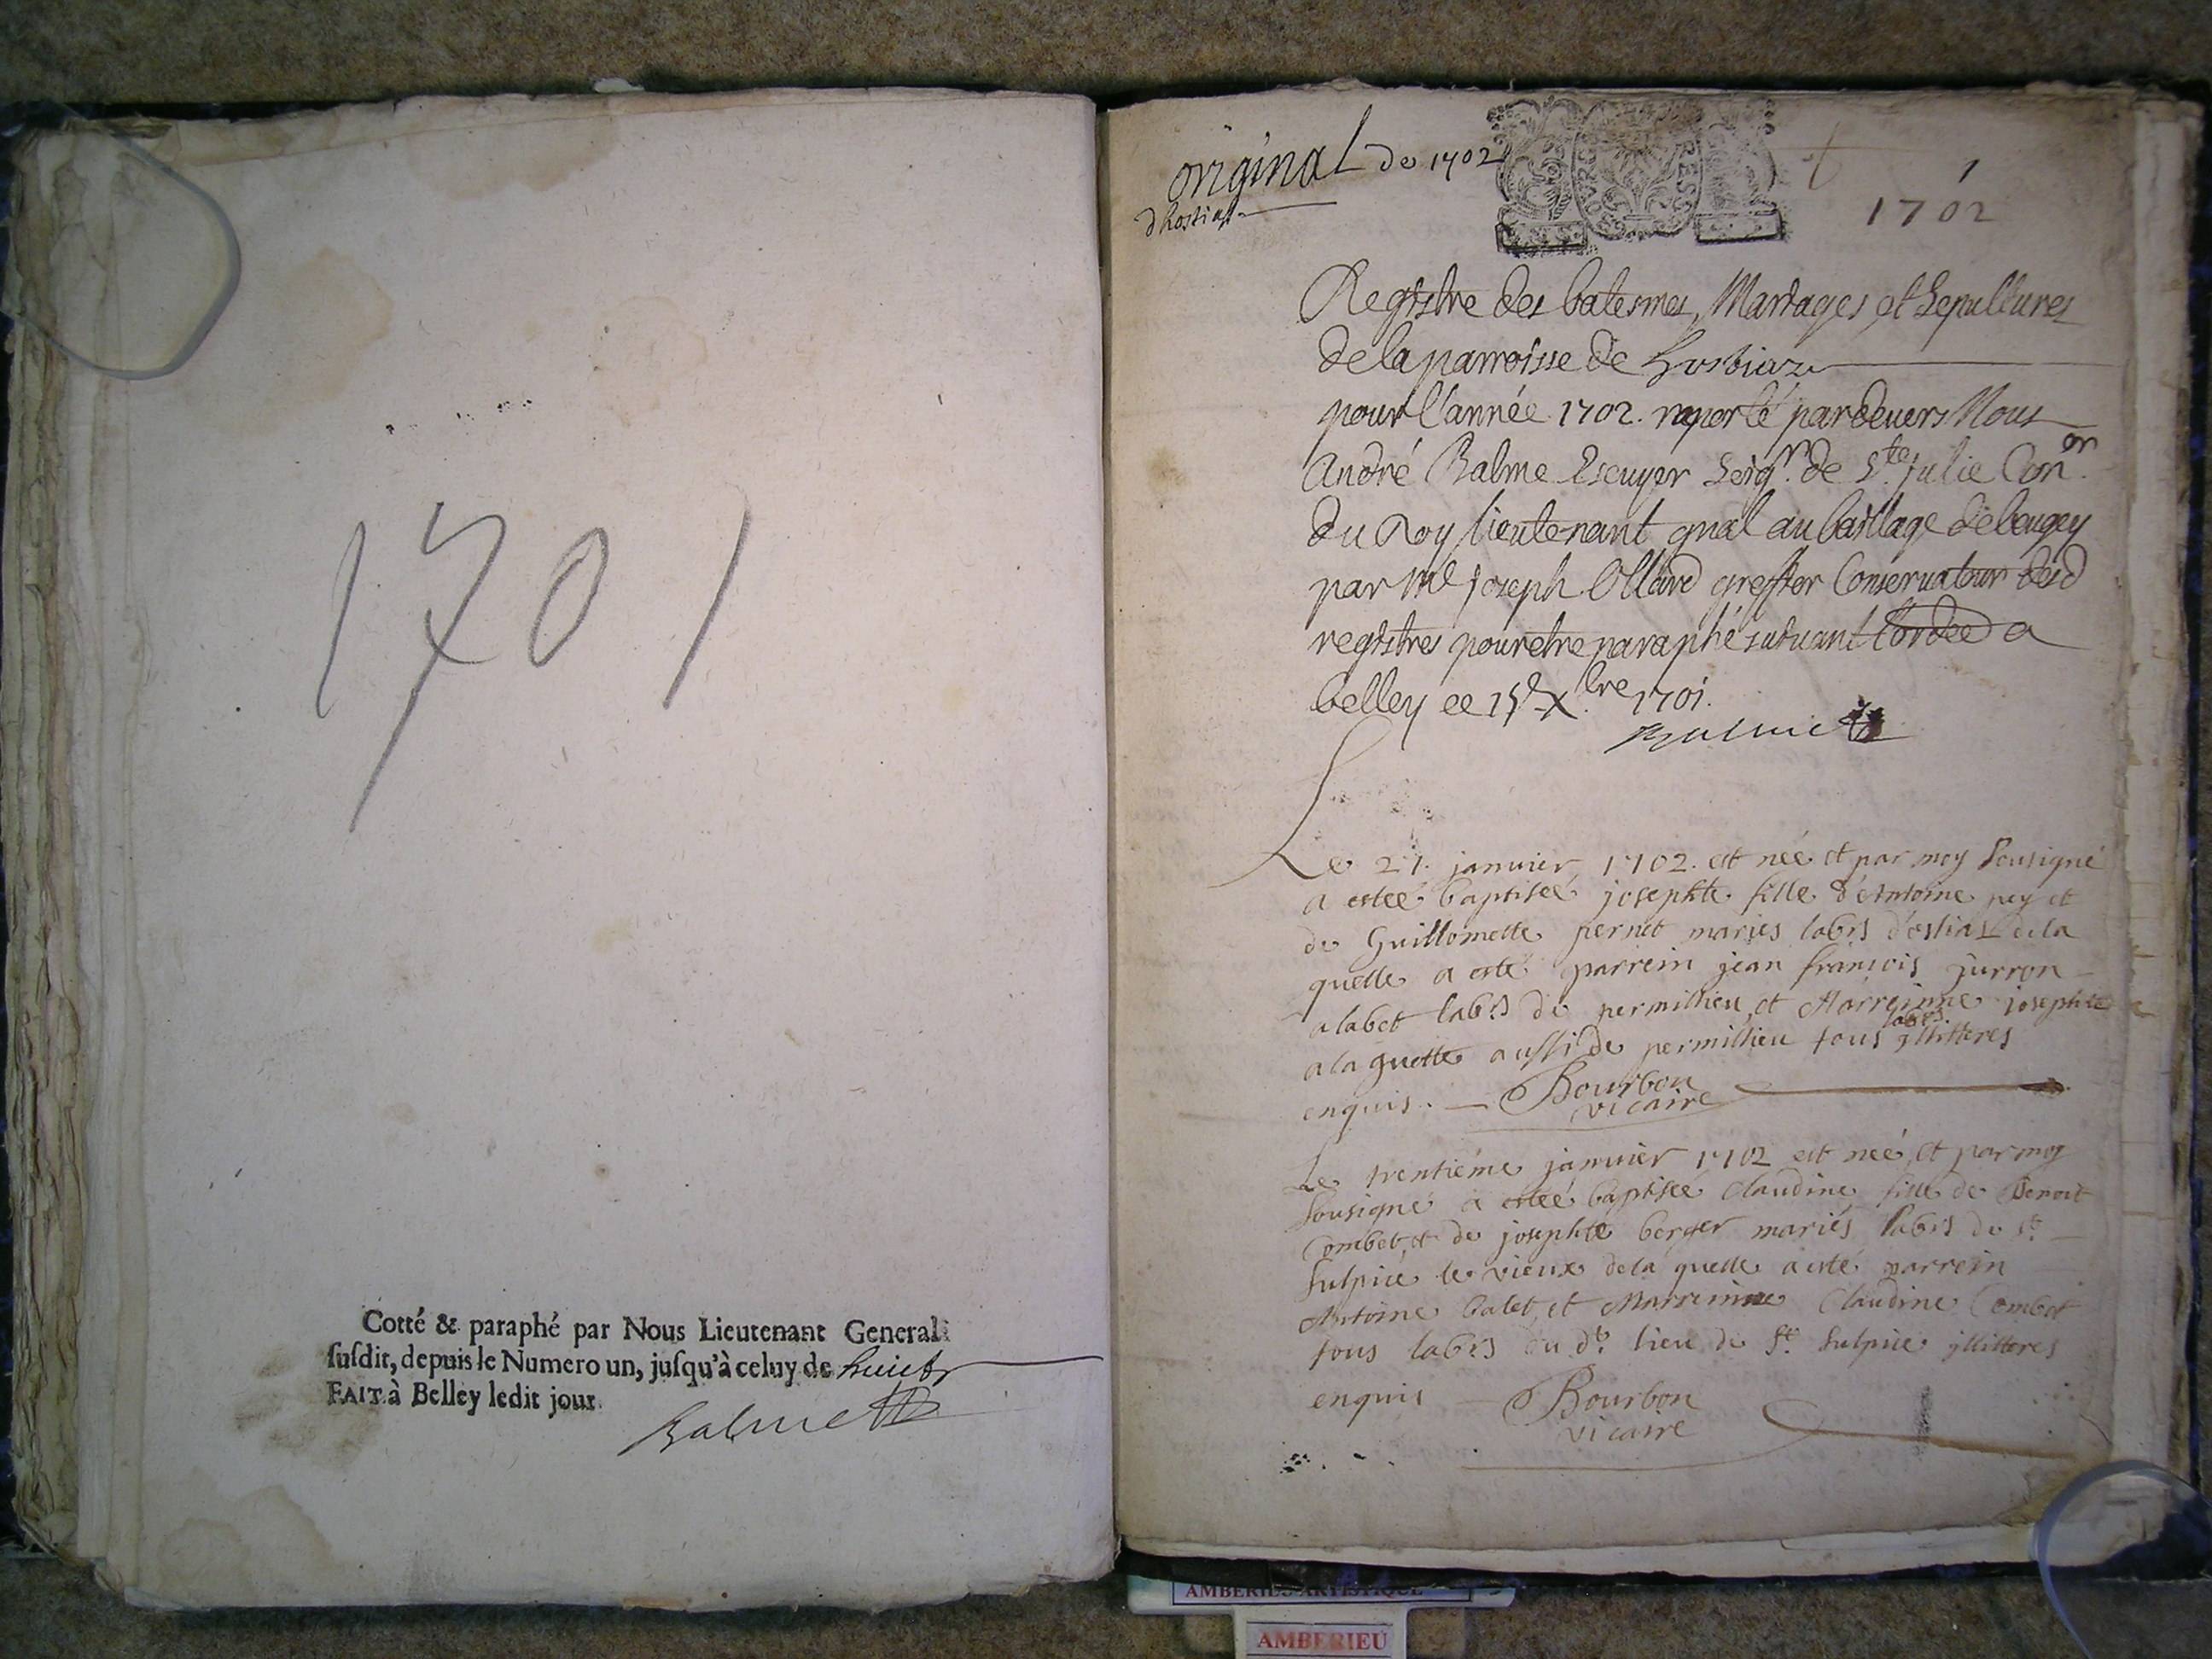 1701
Cotté & paraphé par Nous Lieutenant General
susdit, depuis le Numero un, jusqu'à celuy de huict
FAIT à Belley ledit jour.
Balme
original de 1702
dhostias
1
1702
Registre des batesmes, Mariages et Sepultures
de la parroisse de hostiaz
pour l'année 1702. raporté pardevers Nous
André Balme Escuyer Seigr. de Ste julie Coner.
du Roy lieutenant gnal au bailliage de beugey
par Me joseph Ollard greffier Conservateur desd
registres pour etre paraphé suivant l'ordce a
belley ce 15e Xbre 1701.
Balme
Le 21. janvier 1702. est née et par moy Sousigné
a esteé baptiseé josephte fille d'Antoine pey et
de Guillomette pernet mariés labrs d'ostiaz de la
quelle a esté parrein jean francois jurron
alabet labrs de permillieu et Marreinne josephte
alaguette aussi de permillieu tous labrs jllitteres
enquis. Bourbon
vicaire
Le trentiéme janvier 1702 est neé, et par moy
Sousigné a esteé baptiseé Claudine fille de Benoit
Combet, et de josephte berger mariés labrs de st.
Sulpice le vieux de la quelle a esté parrein
Antoine balet, et Marreinne Claudine Combet
tous labrs du dt. lieu de St. Sulpice jllitteres
enquis Bourbon
vicaire
AMBERIEU ARTISTIQUE
AMBERIEU